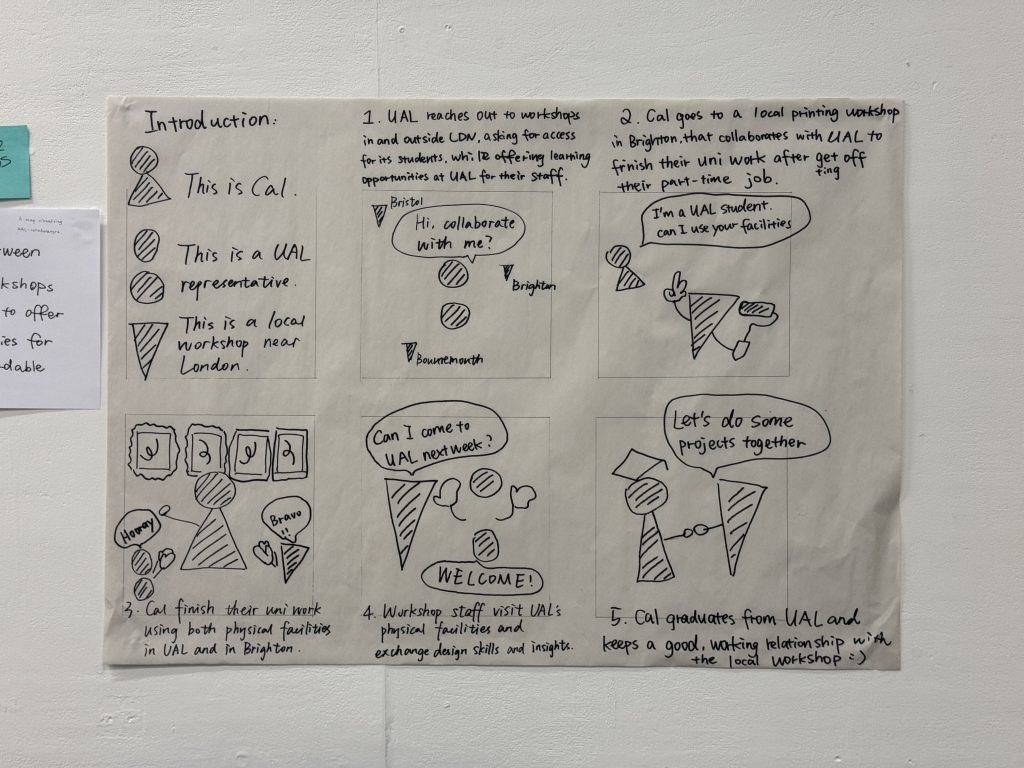 Introduction:
This is Cal.
This is a UAL
representative.
This is a local
workshop near
London.
1. UAL reaches out to workshops
in and outside LDN, asking for access
for its students, while offering learning
opportunities at UAL for their staff.
Bristol
Hi, collaborate
with me?
Brighton
Bournemouth
2. Cal goes to a local printing workshop
in Brighton, that collaborates with UAL to
finish their uni work after getting off
their part-time job.
I'm a UAL student.
can I use your facilities
Hooray
Bravo
!!
3. Cal finish their uni work
using both physical facilities
in UAL and in Brighton.
Can I come to
UAL next week?
WELCOME!
4. Workshop staff visit UAL's
physical facilities and
exchange design skills and insights.
Let's do some
projects together
5. Cal graduates from UAL and
keeps a good, working relationship with
the local workshop :)
ween
kshops
to offer
ies for
dable